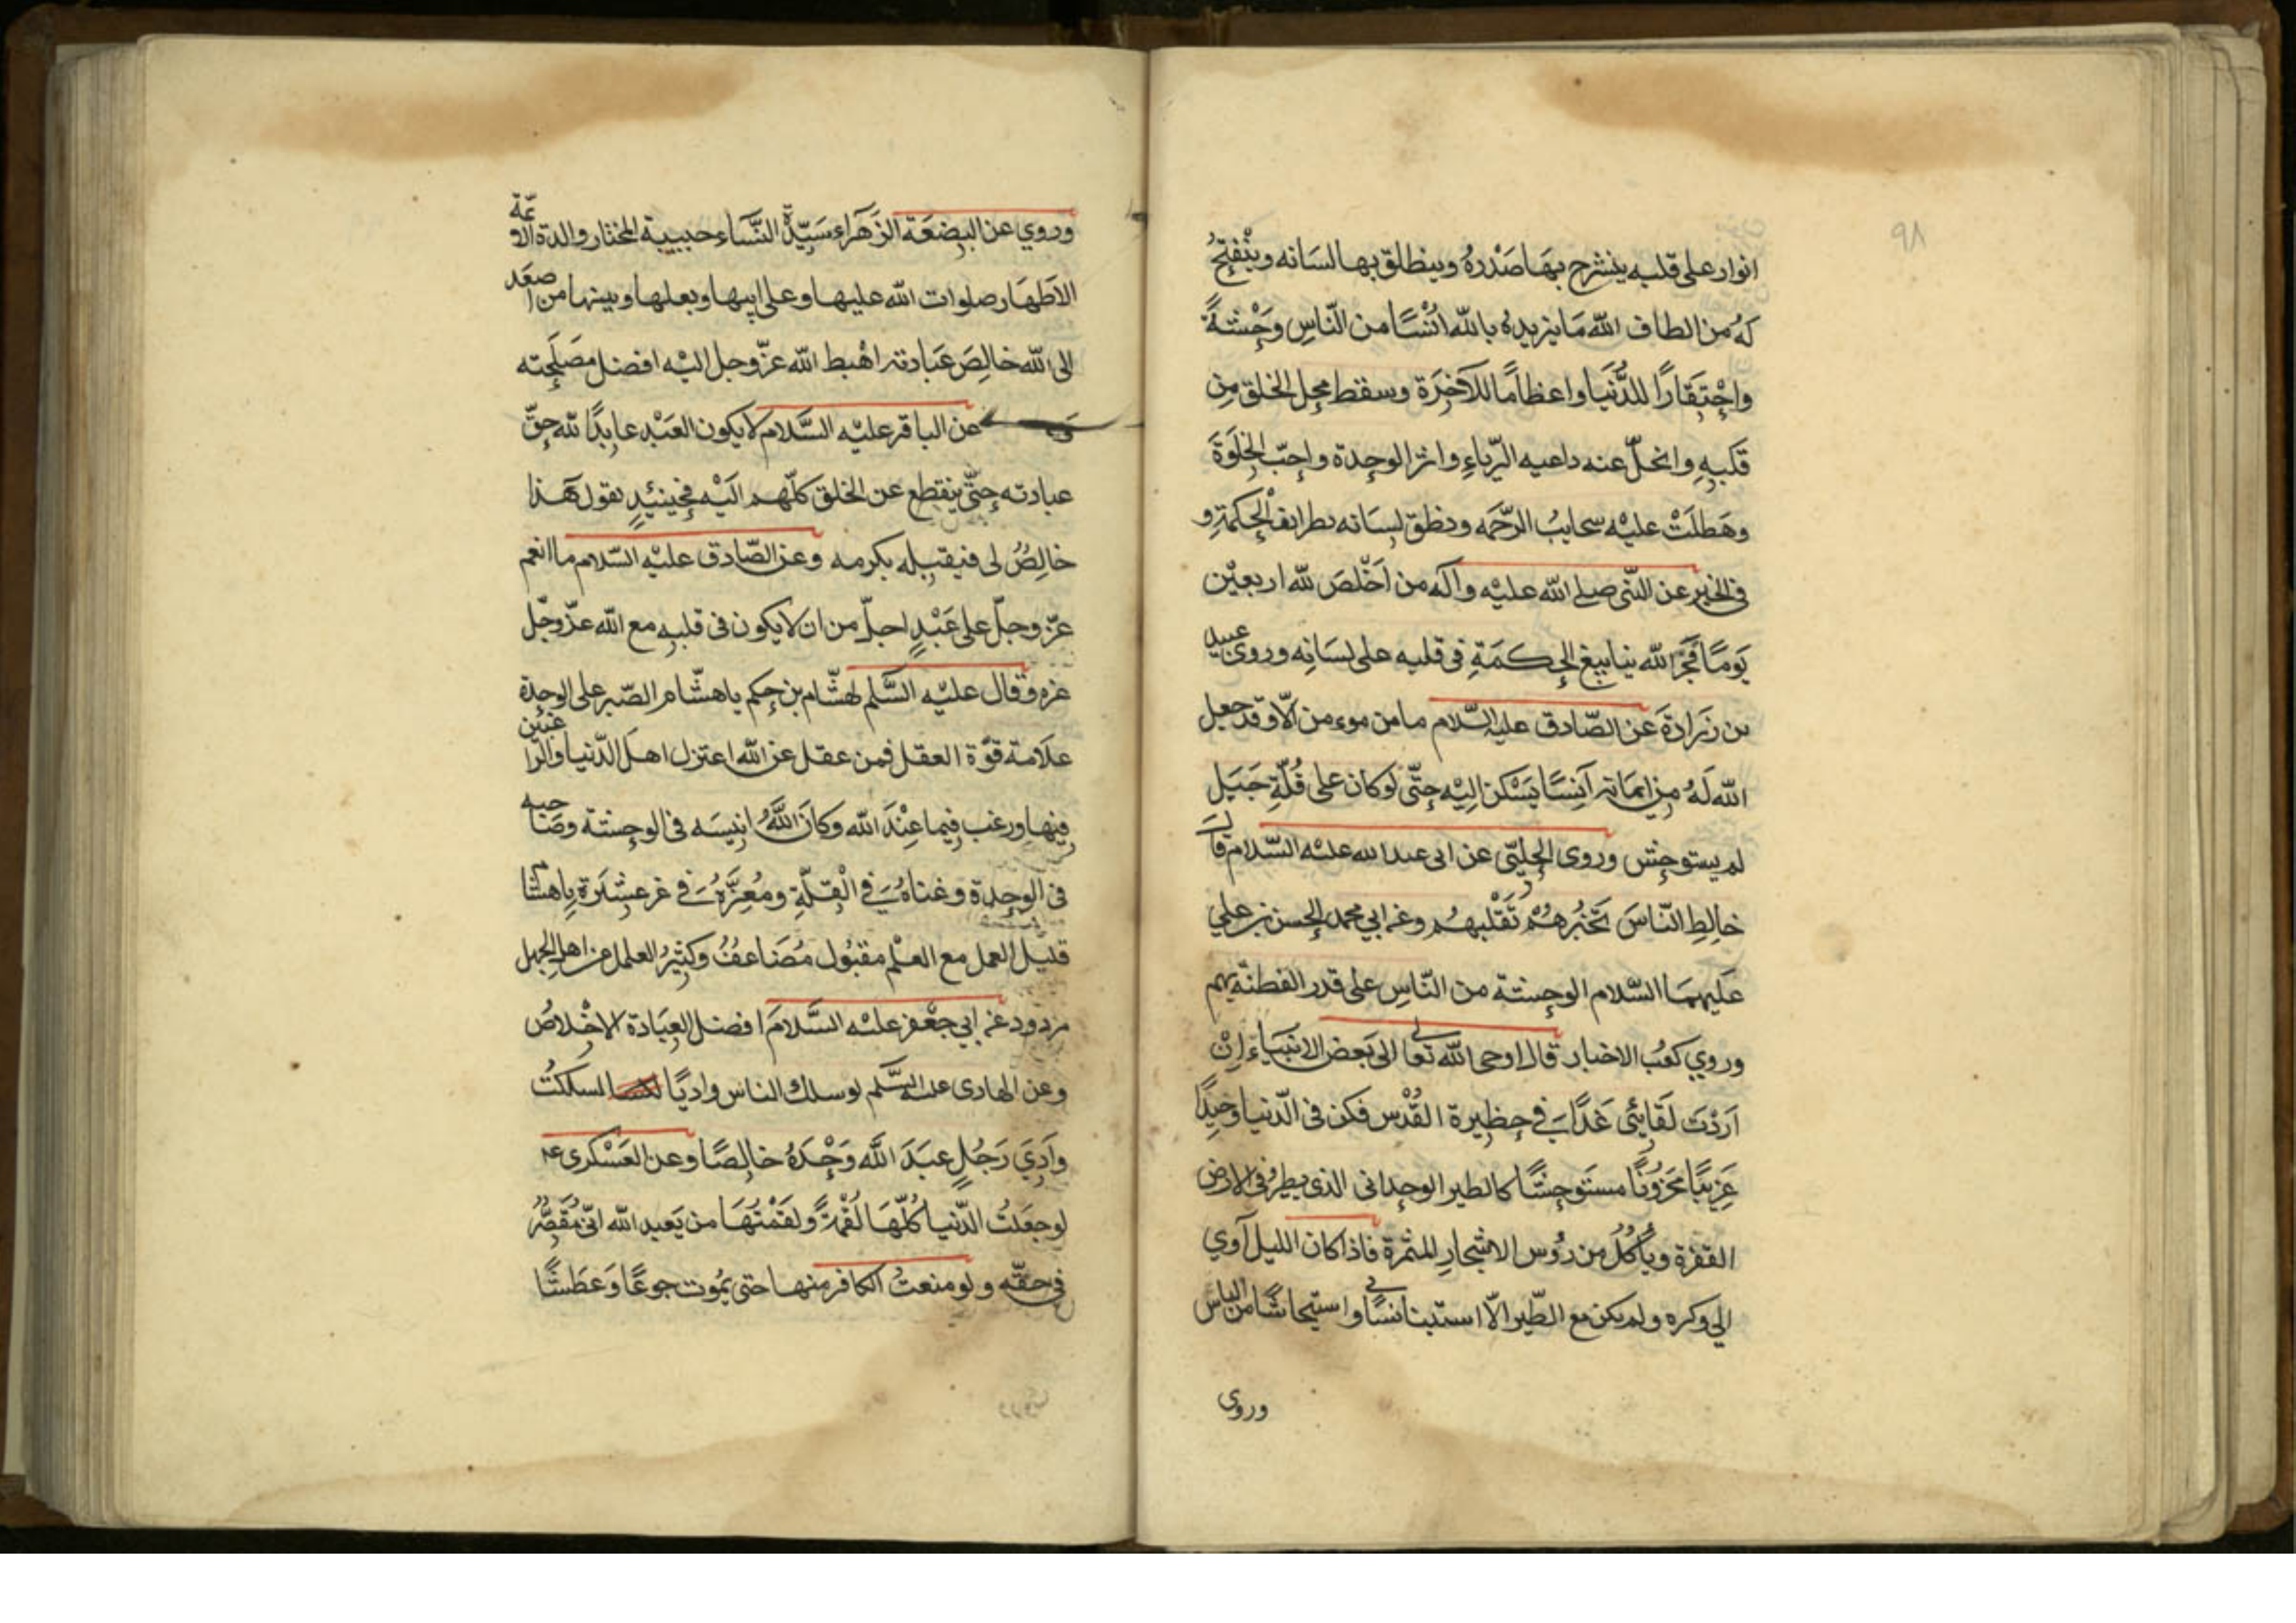 ٩٨
انوار على قلبه ينشرح بهَا صَدْرهُ وينطلق بها لسَانه وينْفتِحُ
لهُ من الطاف الله مَا يزيده بالله اُنْسًا من النّاسِ وَحْشَةً
واحْتِقَارًا للدُّنيَا واعظامًا للآخِرَة وسقط محل الخلق مِن
قَلبِهِ وانحلّ عنه داعيه الرّياءِ واثر الوحدة واحبّ الخلْوَةَ
وهَطلَتْ عليْه سحايبُ الرّحمَه ونطق لِسَانه بطرايف الحِكمَةِ و
فى الخبر عن النّبى صلى الله عليْه وآله من اَخْلصَ للّه اربعيْن
يَومًا فجَّرَ اللّه ينابيعَ الحِكمَةِ فى قلبه على لسَانِه وروى عبيد
بن زرَارَةَ عَن الصّادق عليه السّلام مامن موء من الّا وقد جعل
اللّه لَهُ مِن ايمَانه آنِسًا يَسْكن اِليْه حتّى لوكان على قُلّةِ جَبَل
لم يستوحِش وروى الحلبّى عن ابى عبد الله عليْه السّلام قال
خالِطِ النّاسَ تَخْبُرهُمْ تَقْلبهُم وعن ابي محمد الحسن بن علي
عَليهِمَا السّلام الوحشة من النّاسِ على قدر الفطنَة بهم
وروي كعبُ الاخبار قال اوحى اللّه تعالى الى بَعض الانبيَاء اِنْ
اَرَدْتَ لقَائِى غَدًا فِى حظِيرة القُدْس فكن فى الدّنيا وَحِيدًا
غَرِيبًا مَحْزوُنًا مستَوحِشًا كالطير الوحدانى الذى يطير فى الارض
القفرة ويأكُلُ من رُؤس الاشجارِ المثمرة فاذا كان الليل آوي
الي وكره ولم يكن مع الطّير الّا استيناسًا في واستيحاشًا من النّاس
وروى
وروي عن البِضعَة الزَهَراء سَيّدَة النّسَاء حبيبة المختار والدة الائمّة
الاَطهَار صلوات الله عليها وعلى ابيها وبعلها وبينها من اصعَد
الى الله خالِصَ عبَادته اهْبط الله عزّوجل اليْه افضل مصَلحَته
و عن الباقر عليْه السَّلام لا يكون العَبْد عابِدًا للّه حقّ
عبادته حتّى ينقطع عن الخلق كلّهم اليْه فحِينئِدٍ يقول هَذا
خالِصُ لى فيقبله بكرمه وعن الصّادق عليْه السّلام ما انعم
عزّ وجلّ على عَبْدٍ اجلّ من ان لا يكون فى قلبِه مع الله عزّوجّل
غيره وقال عليْه السَّلم لهشّام بن حِكم ياهشّام الصّبر على الوحدة
علَامة قوّة العقل فمن عقل عن اللّه اعتزل اهلَ الدّنيا والرّاغبين
فِيها ورغب فِيما عِنْدَ اللّه وكان اللَّهُ انِيسَه فى الوحشة وصَاحبه
فى الوحدة وغناهُ فِى الْقِلّةِ ومُعِزّهُ فى غير عشِيرَة ياهشام
قليل العمل مع العلْم مقبُول مُضَاعفُ وكثِيرُ العلمل من اهل الجهل
مردود عن ابي جعْفر عليْه السَّلامَ افضل العِبَادة الاخْلاصُ
وعن الهادى عليه السّلم لوسلك الناس واديًا لسلكتُ
وادِيَ رَجُلٍ عبَدَ اللَّه وَحْدَهُ خالِصًا وعن العَسْكرى ع
لوجعَلتُ الدّنيا كُلّهَا لُقْمَةً ولقمْتُهَا من يَعبد الله انّى مُقَصِّرُ
فى حقّه ولو منعتُ الكافر منها حتى يمُوت جوعًا وَعَطشًا